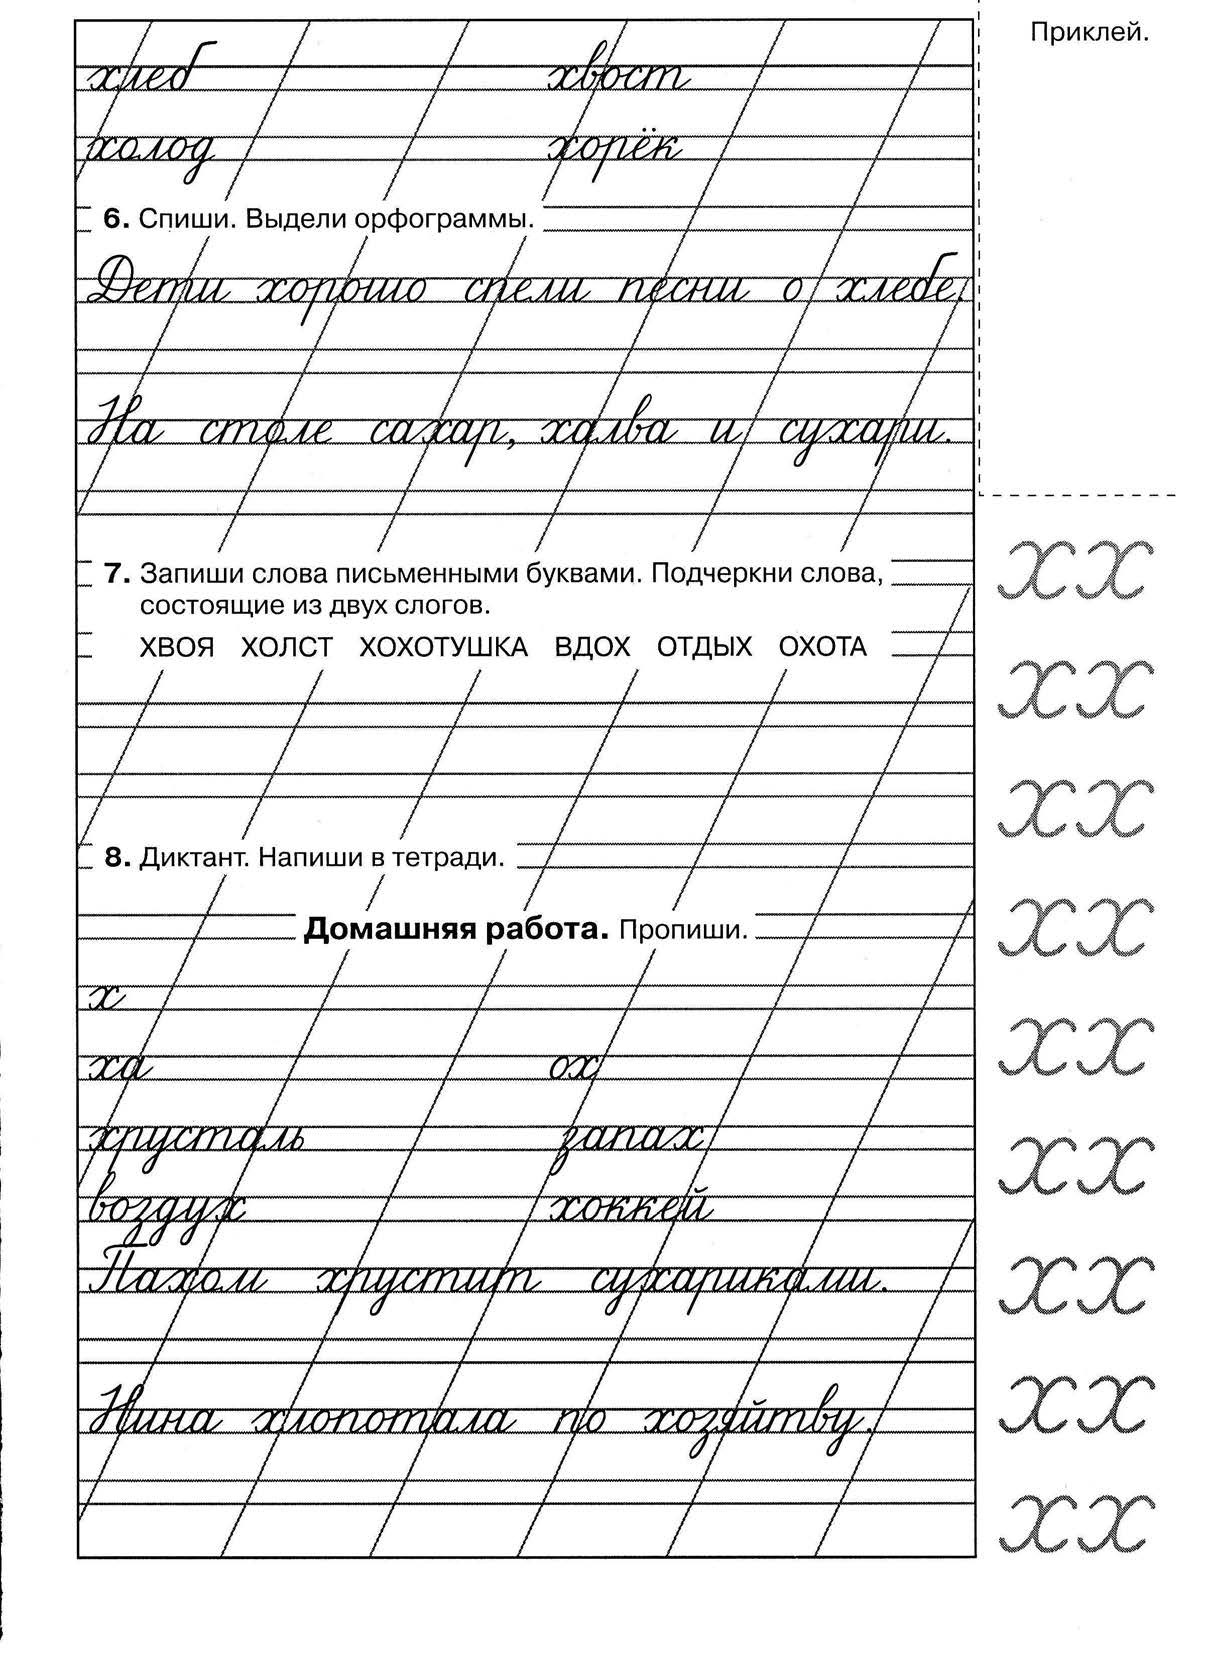 Приклей.
хлеб хвост
холод хорёк
6. Спиши. Выдели орфограммы.
Дети хорошо спели песни о хлебе.
На столе сахар, халва и сухари.
7. Запиши слова письменными буквами. Подчеркни слова,
состоящие из двух слогов.
ХВОЯ ХОЛСТ ХОХОТУШКА ВДОХ ОТДЫХ ОХОТА
8. Диктант. Напиши в тетради.
Домашняя работа. Пропиши.
х
ха ох
хрусталь запах
воздух хоккей
Пахом хрустит сухариками.
Нина хлопотала по хозяйтву.
х х
х х
х х
х х
х х
х х
х х
х х
х х